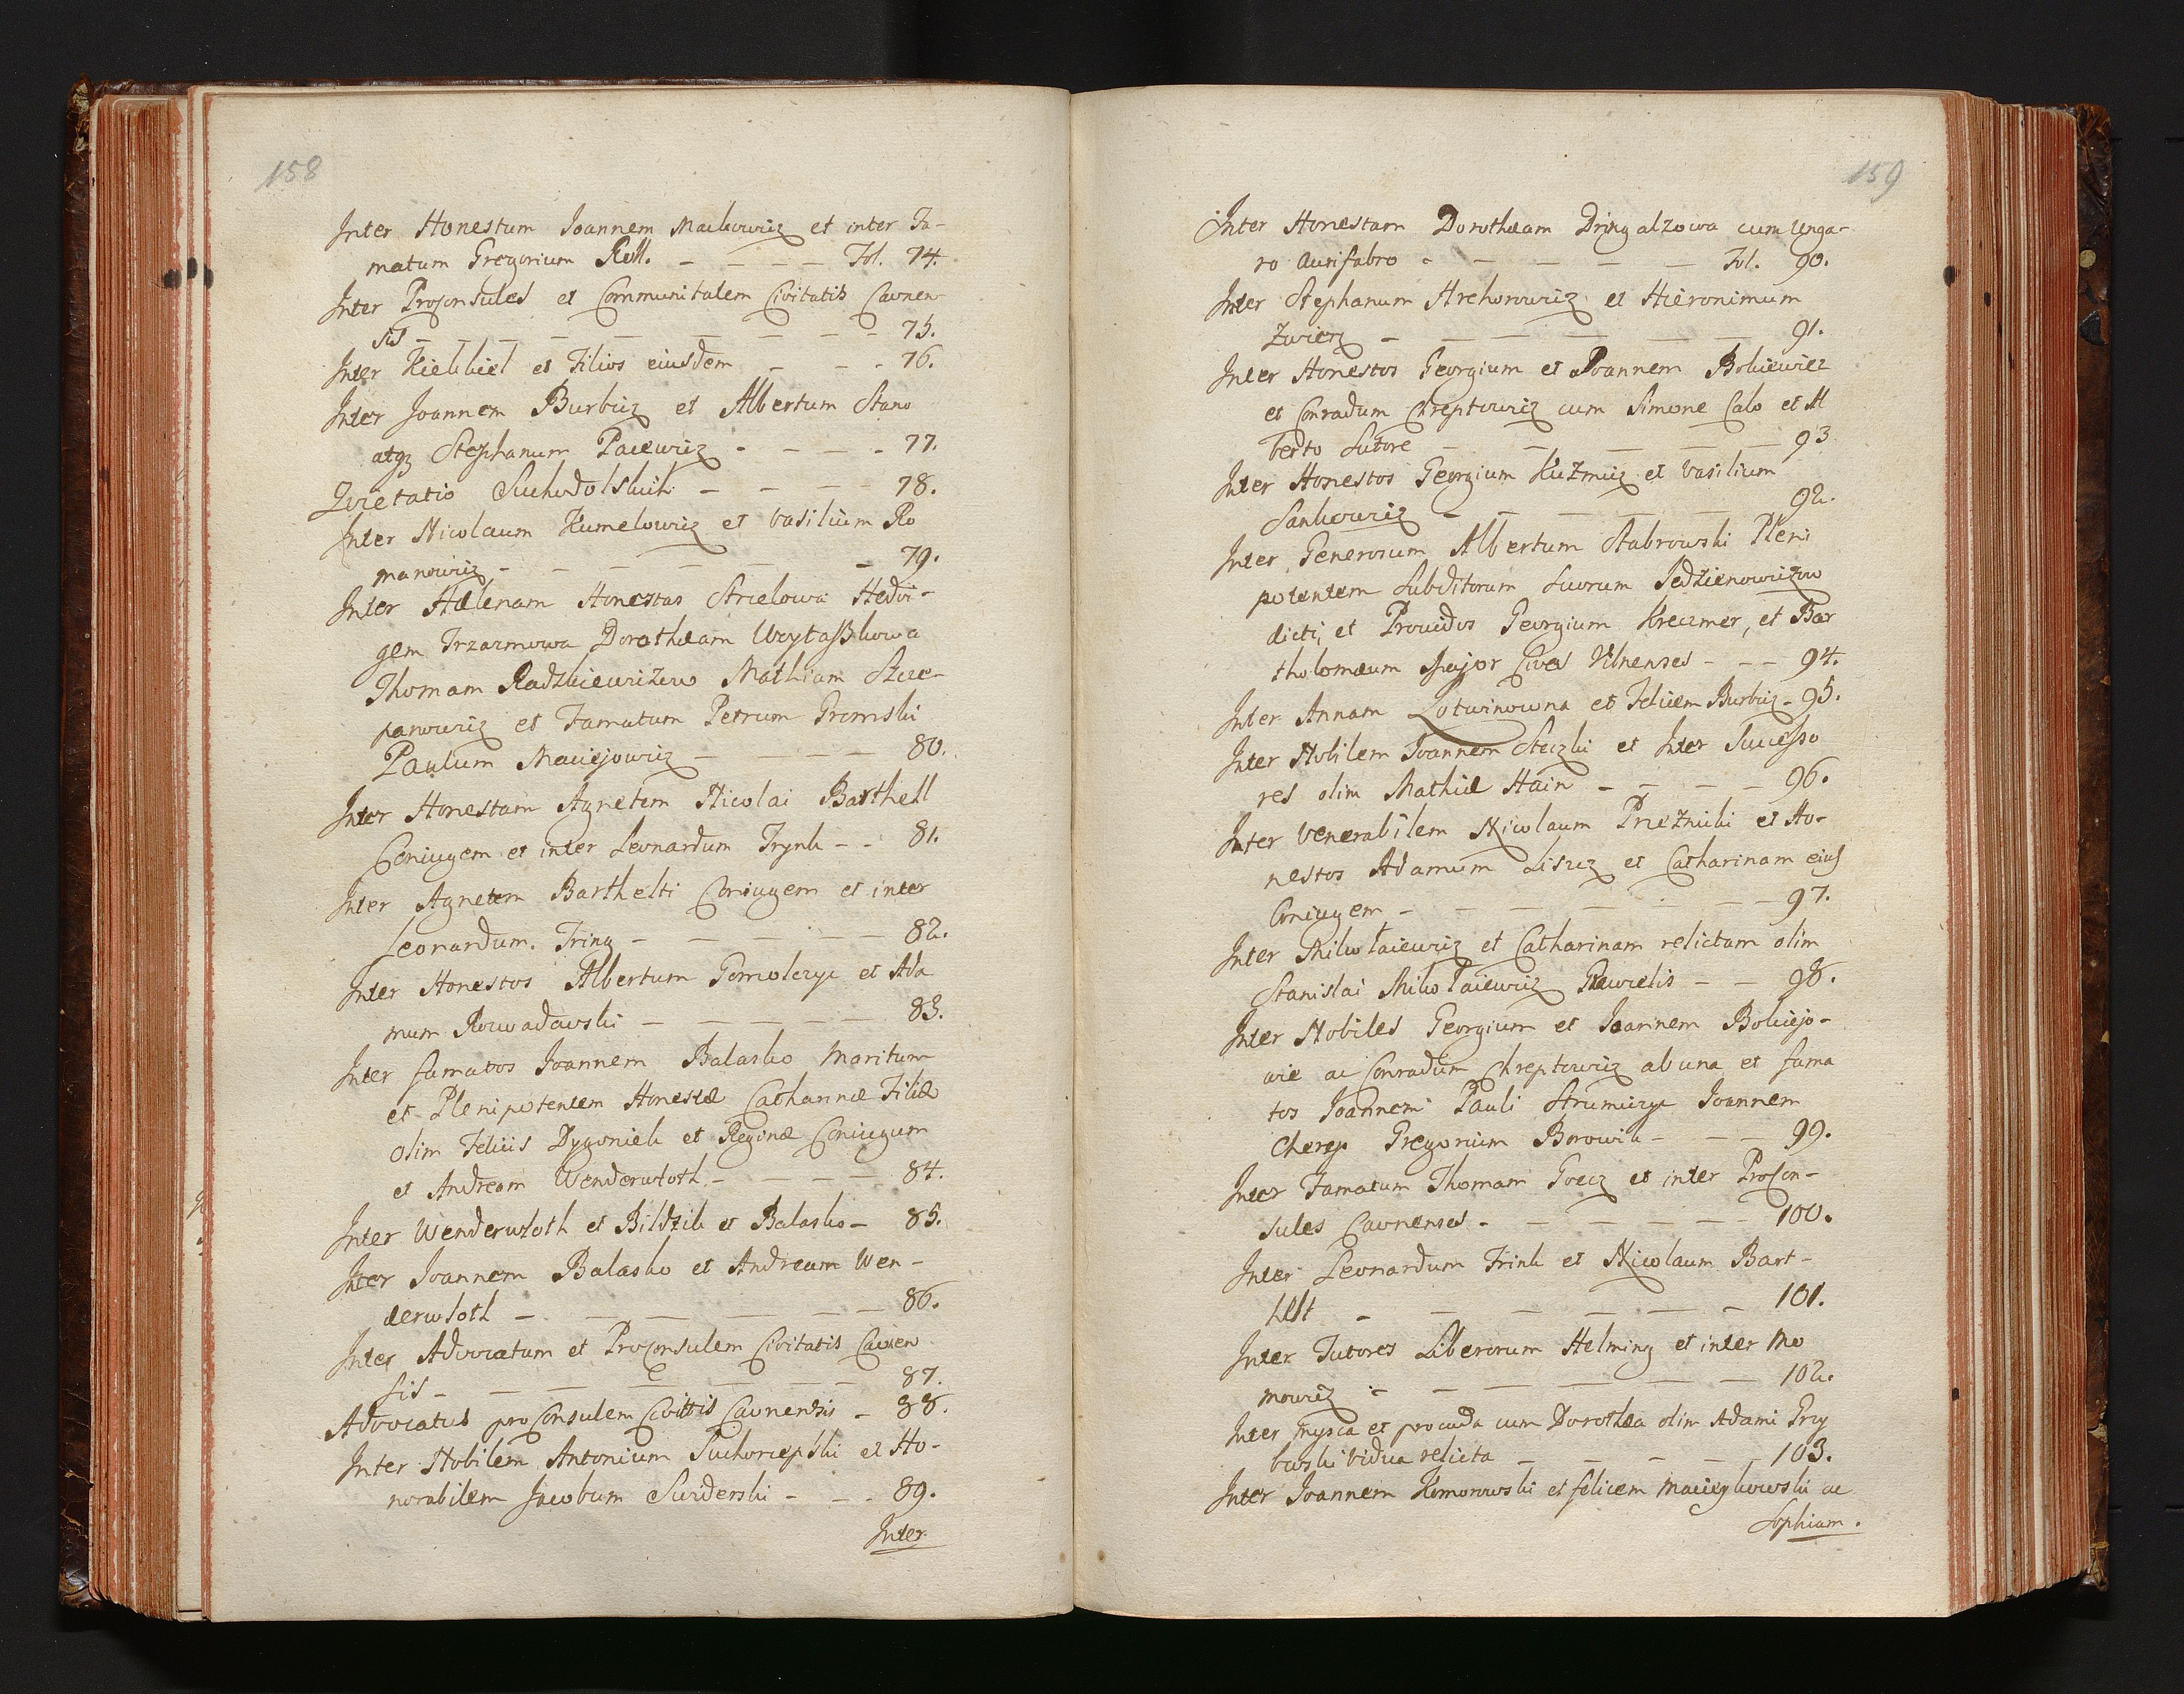 158
Inter Honestum Joannem Mackowicz et inter Fa-
matum Gregorium Roll. - - - - Fol. 74.
Inter Proconsules et Communitatem Civitatis Caunen
sis - - - - - - - - 75.
Inter Kiekbiel et Filios eiusdem - - - 76.
Inter Joannem Burbicz et Albertum Stano
atqz Stephanum Pacewicz - - - - 77.
Qvietatio Suchodolskich - - - - 78.
Inter Nicolaum Kumelowicz et Vasilium Ro
manowicz - - - - - - 79.
Inter Hælenam Honestas Strelowa Hedvi-
gem Trzarmowa Dorotheam Woytaszkowa
Thomam Radzkiewiczow Mathiam Szcze-
panowicz et Famatum Petrum Gromski
Paulum Maciejowicz - - - - 80.
Inter Honestam Agnetem Nicolai Barthell
Coniugem et inter Leonardum Frynk - - 81.
Inter Agnetem Barthelti Coniugem et inter
Leonardum Fring - - - - - 82.
Inter Honestos Albertum Gomolczyc et Ada
mum Rozwadowski - - - - - 83.
Inter famatos Joannem Balasko Maritum
et Plenipotentem Honestæ Catharinæ Filiæ
olim Felicis Dygoniek et Reginæ Coniugum
et Andream Wenderwloth - - - - 84.
Inter Wenderwloth et Bildzik et Balasko - 85.
Inter Joannem Balasko et Andream Wen-
derwloth - - - - - - 86.
Inter Advocatum et Proconsulem Civitatis Caunen
sis - - - - - - - 87.
Advocatus pro Consulem Civittis Caunensis - 88.
Inter Nobilem Antonium Suchorzepski et Ho-
norabilem Jacobum Swiderski - - - 89.
Inter
159
Inter Honestam Dorotheam Dringalzowa cum Unga-
ro Aurifabro - - - - - Fol. 90.
Inter Stephanum Hrehorowicz et Hieronimum
Zwierz - - - - - - 91.
Inter Honestos Georgium et Joannem Bokiewicz
et Conradum Chreptowicz cum Simone Calo et Al
berto Sutore - - - - - 93.
Inter Honestos Georgium Kuzmicz et Vasilium
Sankowicz - - - - - 92.
Inter Generosum Albertum Stabrowski Pleni
potentem Subditorum suorum Jedzienowiczow
dicti, et Providos Georgium Kreczmer, et Bar
tholomæum Major Cives Vilnenses - - - 94.
Inter Annam Lotwinowna et Felicem Burbicz - 95.
Inter Nobilem Joannem Steczki et Inter Successo
res olim Mathiæ Hain - - - - 96.
Inter Venerabilem Nicolaum Preznicki et Ho-
nestos Adamum Liszcz et Catharinam eius
Coniugem - - - - - - 97.
Inter Mikołaiewicz et Catharinam relictam olim
Stanislai Mikołaiewicz Gawrelis - - 98.
Inter Nobiles Georgium et Joannem Bokiejo-
wie ac Conradum Chreptowicz ab una et fama
tos Joannem Pauli Strumiczyc Joannem
Cherep Gregorium Borowik - - - 99.
Inter Famatum Thomam Grecz et inter Procon-
sules Caunenses - - - - - - 100.
Inter Leonardum Frink et Nicolaum Bart-
helt - - - - - - 101.
Inter Tutores Liberorum Helming et inter Mo
mowicz - - - - - - 102.
Inter Frysca et procuda cum Dorothea olim Adami Grzy
bowski vidua relicta - - - - 103.
Inter Joannem Komorowski et felicem Macieykowski ac
Sophiam.